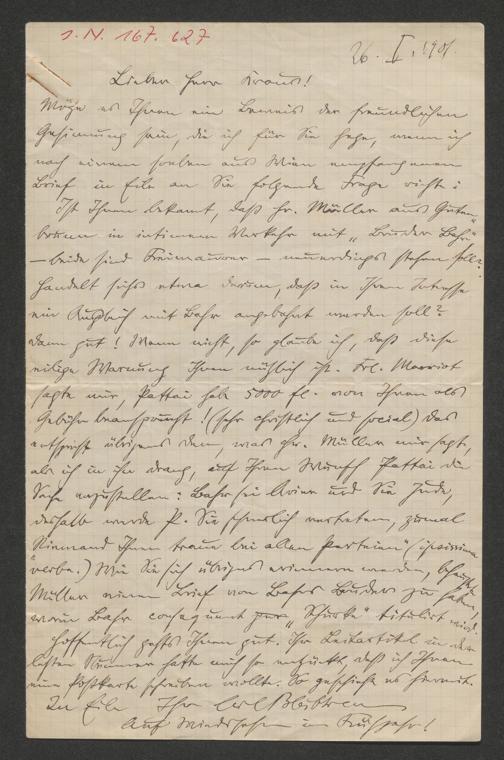 I. N. 167. 627
26. I. 1901.
Lieber Herr Kraus!
Möge es Ihnen ein Beweis der freundlichen
Gesinnung sein, die ich für Sie hege, wenn ich
nach einem soeben aus Wien empfangenen
Brief in Eile an Sie folgende Frage richte:
Ist Ihnen bekannt, daß Hr. Müller aus Guten-
brunn in intimem Verkehr mit „Bruder Bahr"
— beide sind Freimaurer — neuerdings stehen soll?
Handelt sichs etwa darum, daß in Ihrem Interesse
ein Ausgleich mit Bahr angebahnt werden soll?
dann gut! Wenn nicht, so glaube ich, daß diese
eilige Warnung Ihnen nützlich ist. Frl. Marriot
sagte mir, Pattai habe 5000 fl. von Ihnen als
Gebühr beansprucht. (sehr christlich und social) Das
entspricht übrigens dem, was Hr. Müller mir sagt,
als ich in ihn drang, auf Ihren Wunsch Pattai die
Sache vorzustellen: Bahr sei Arier und Sie Jude,
deshalb werde P. Sie schwerlich vertreten, zumal
„Niemand Ihnen traue bei allen Parteien" (ipsissima
verba.) Wie Sie sich übrigens erinnern werden, behauptet
Müller einen Brief von Bahrs Bruder zu haben,
worin Bahr consequent „Schurke" tituliert wird.
Hoffentlich gehts Ihnen gut. Ihr Leitartikel in der
letzten Nummer hatte mich so entzückt, daß ich Ihnen
eine Postkarte schreiben wollte. So geschiehe es hiermit.
In Eile Ihr Carl Bleibtreu
Auf Wiedersehn im Frühjahr!